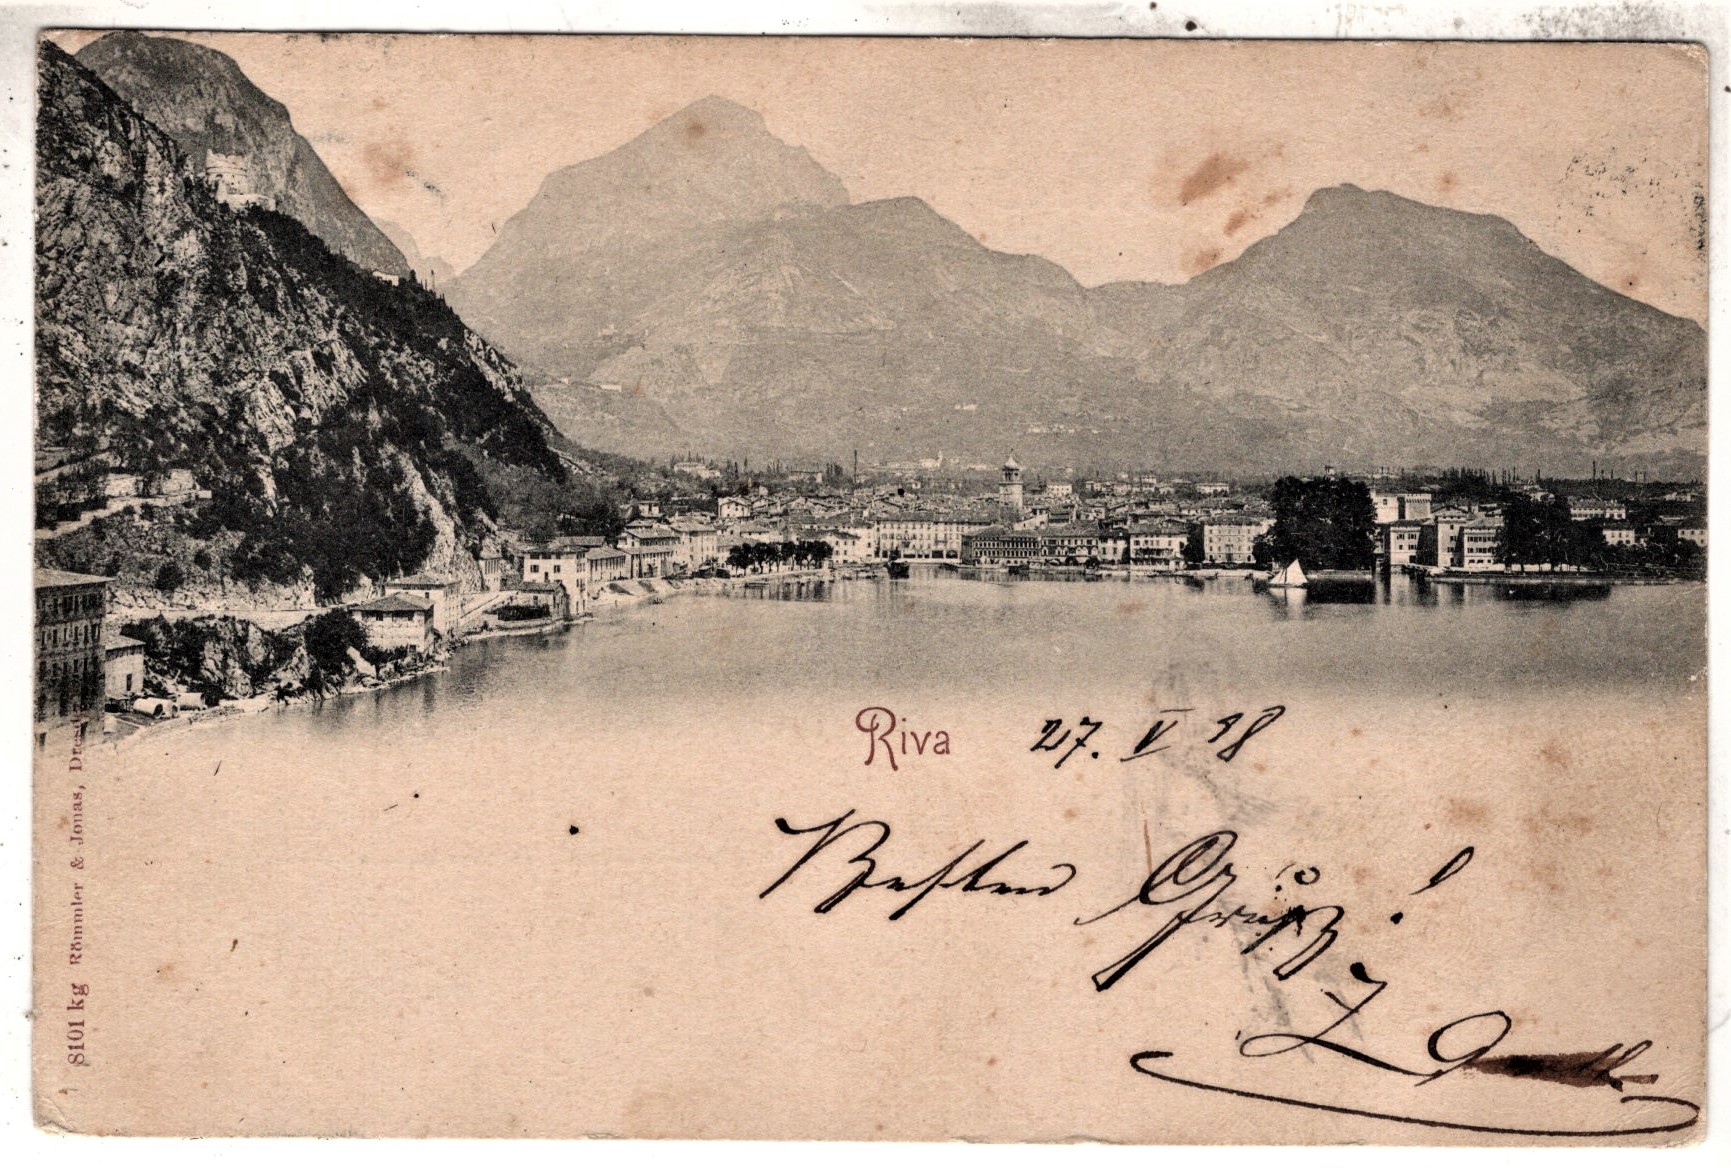 Riva 27. V 98
Besten Gruß!
8101 kg Römmler & Jonas, Dresden